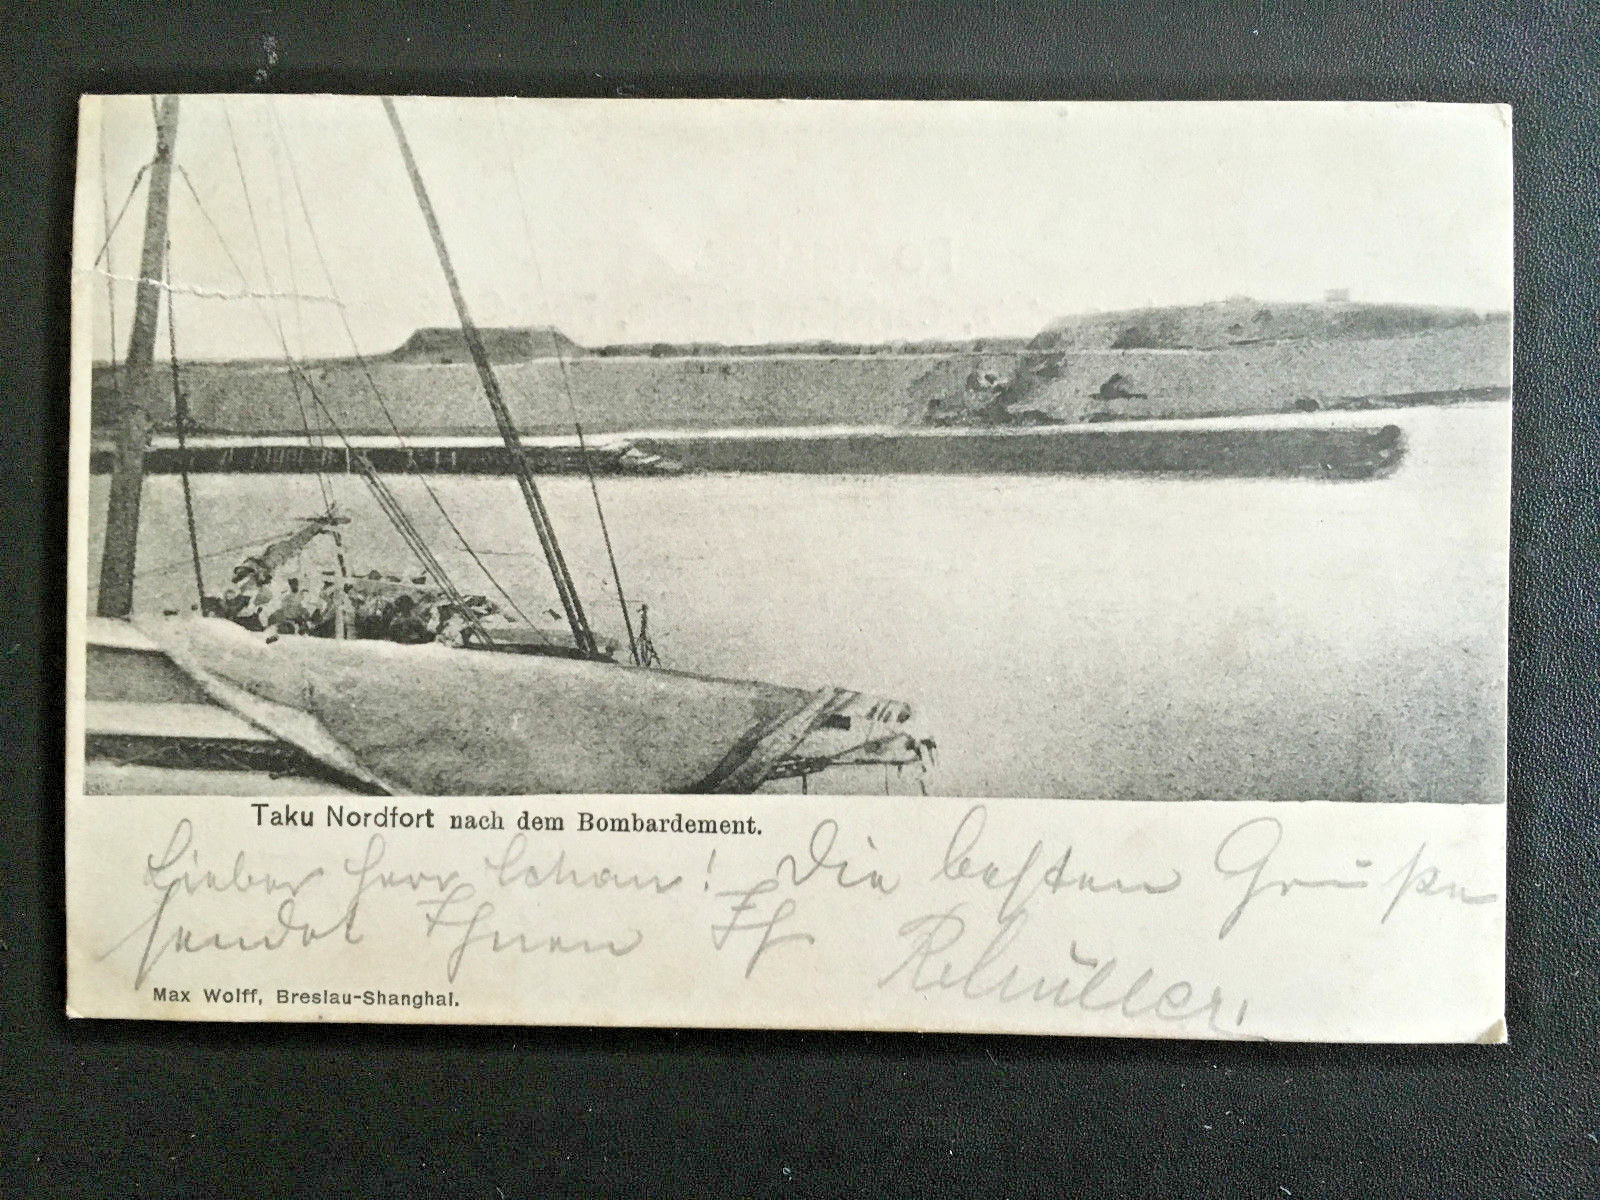 Taku Nordfort nach dem Bombardement.
Lieber Herr ! Die besten Grüße
sendet Ihnen Ihr
Max Wolff, Breslau-Shanghai.